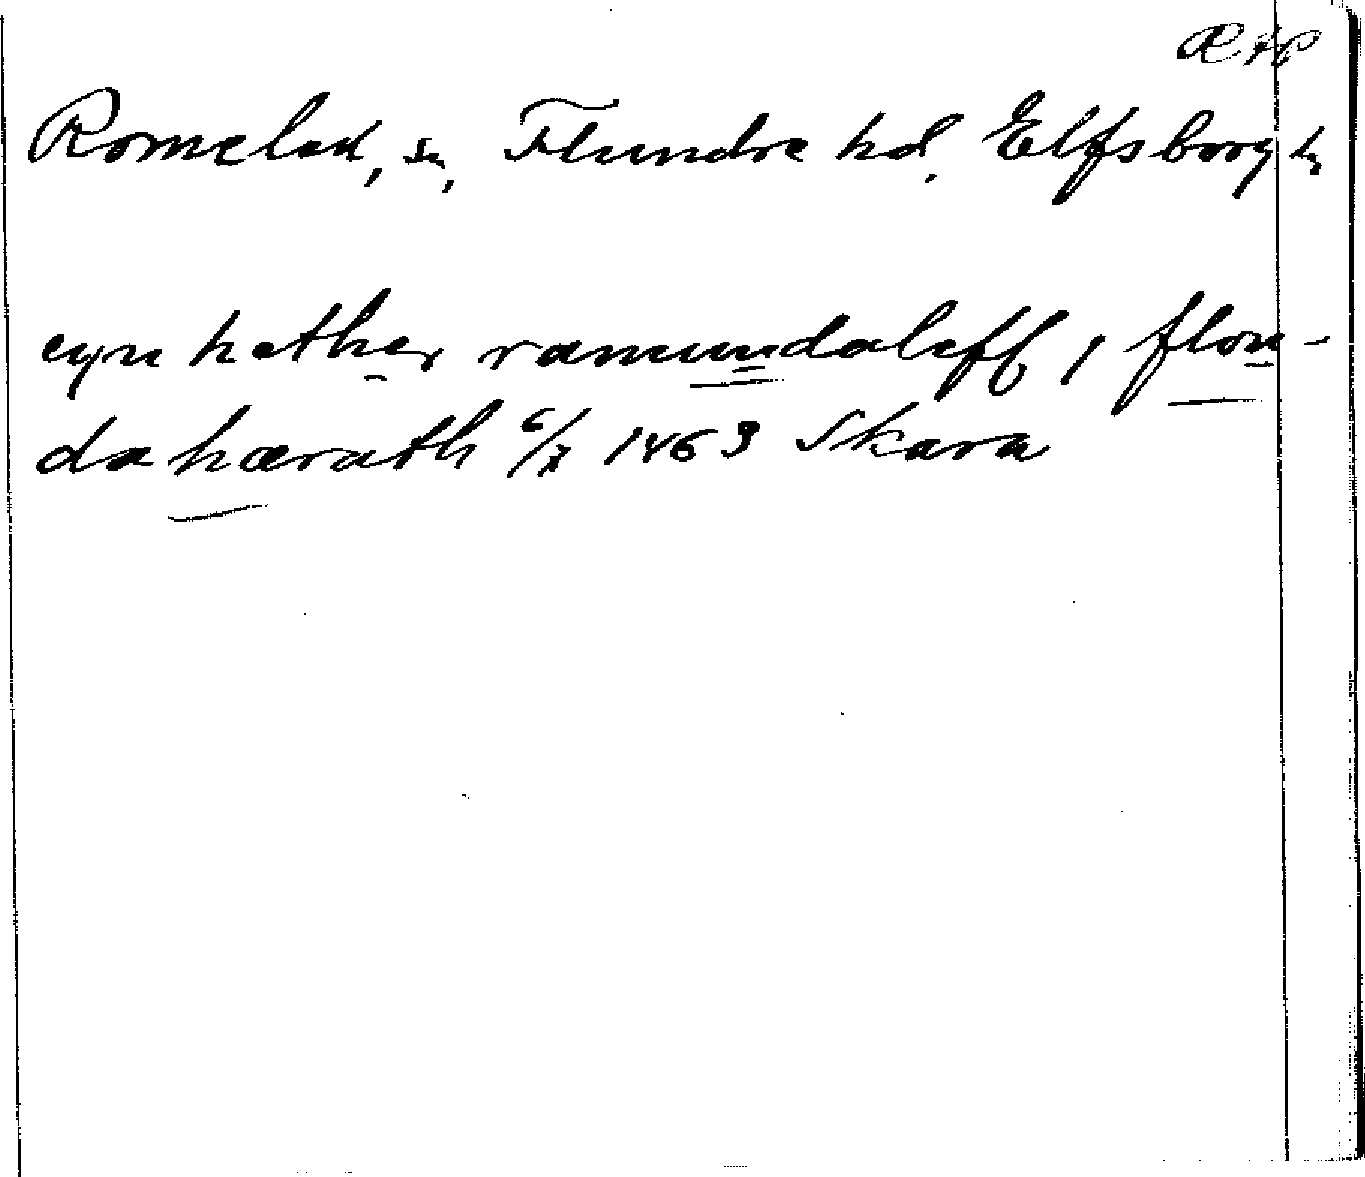 Æ HP
Romelad, sn, Flundre hd. Elfsborg l.
eyn hether ramundaleff i flon-
da hærath 6/X 1463 Skara